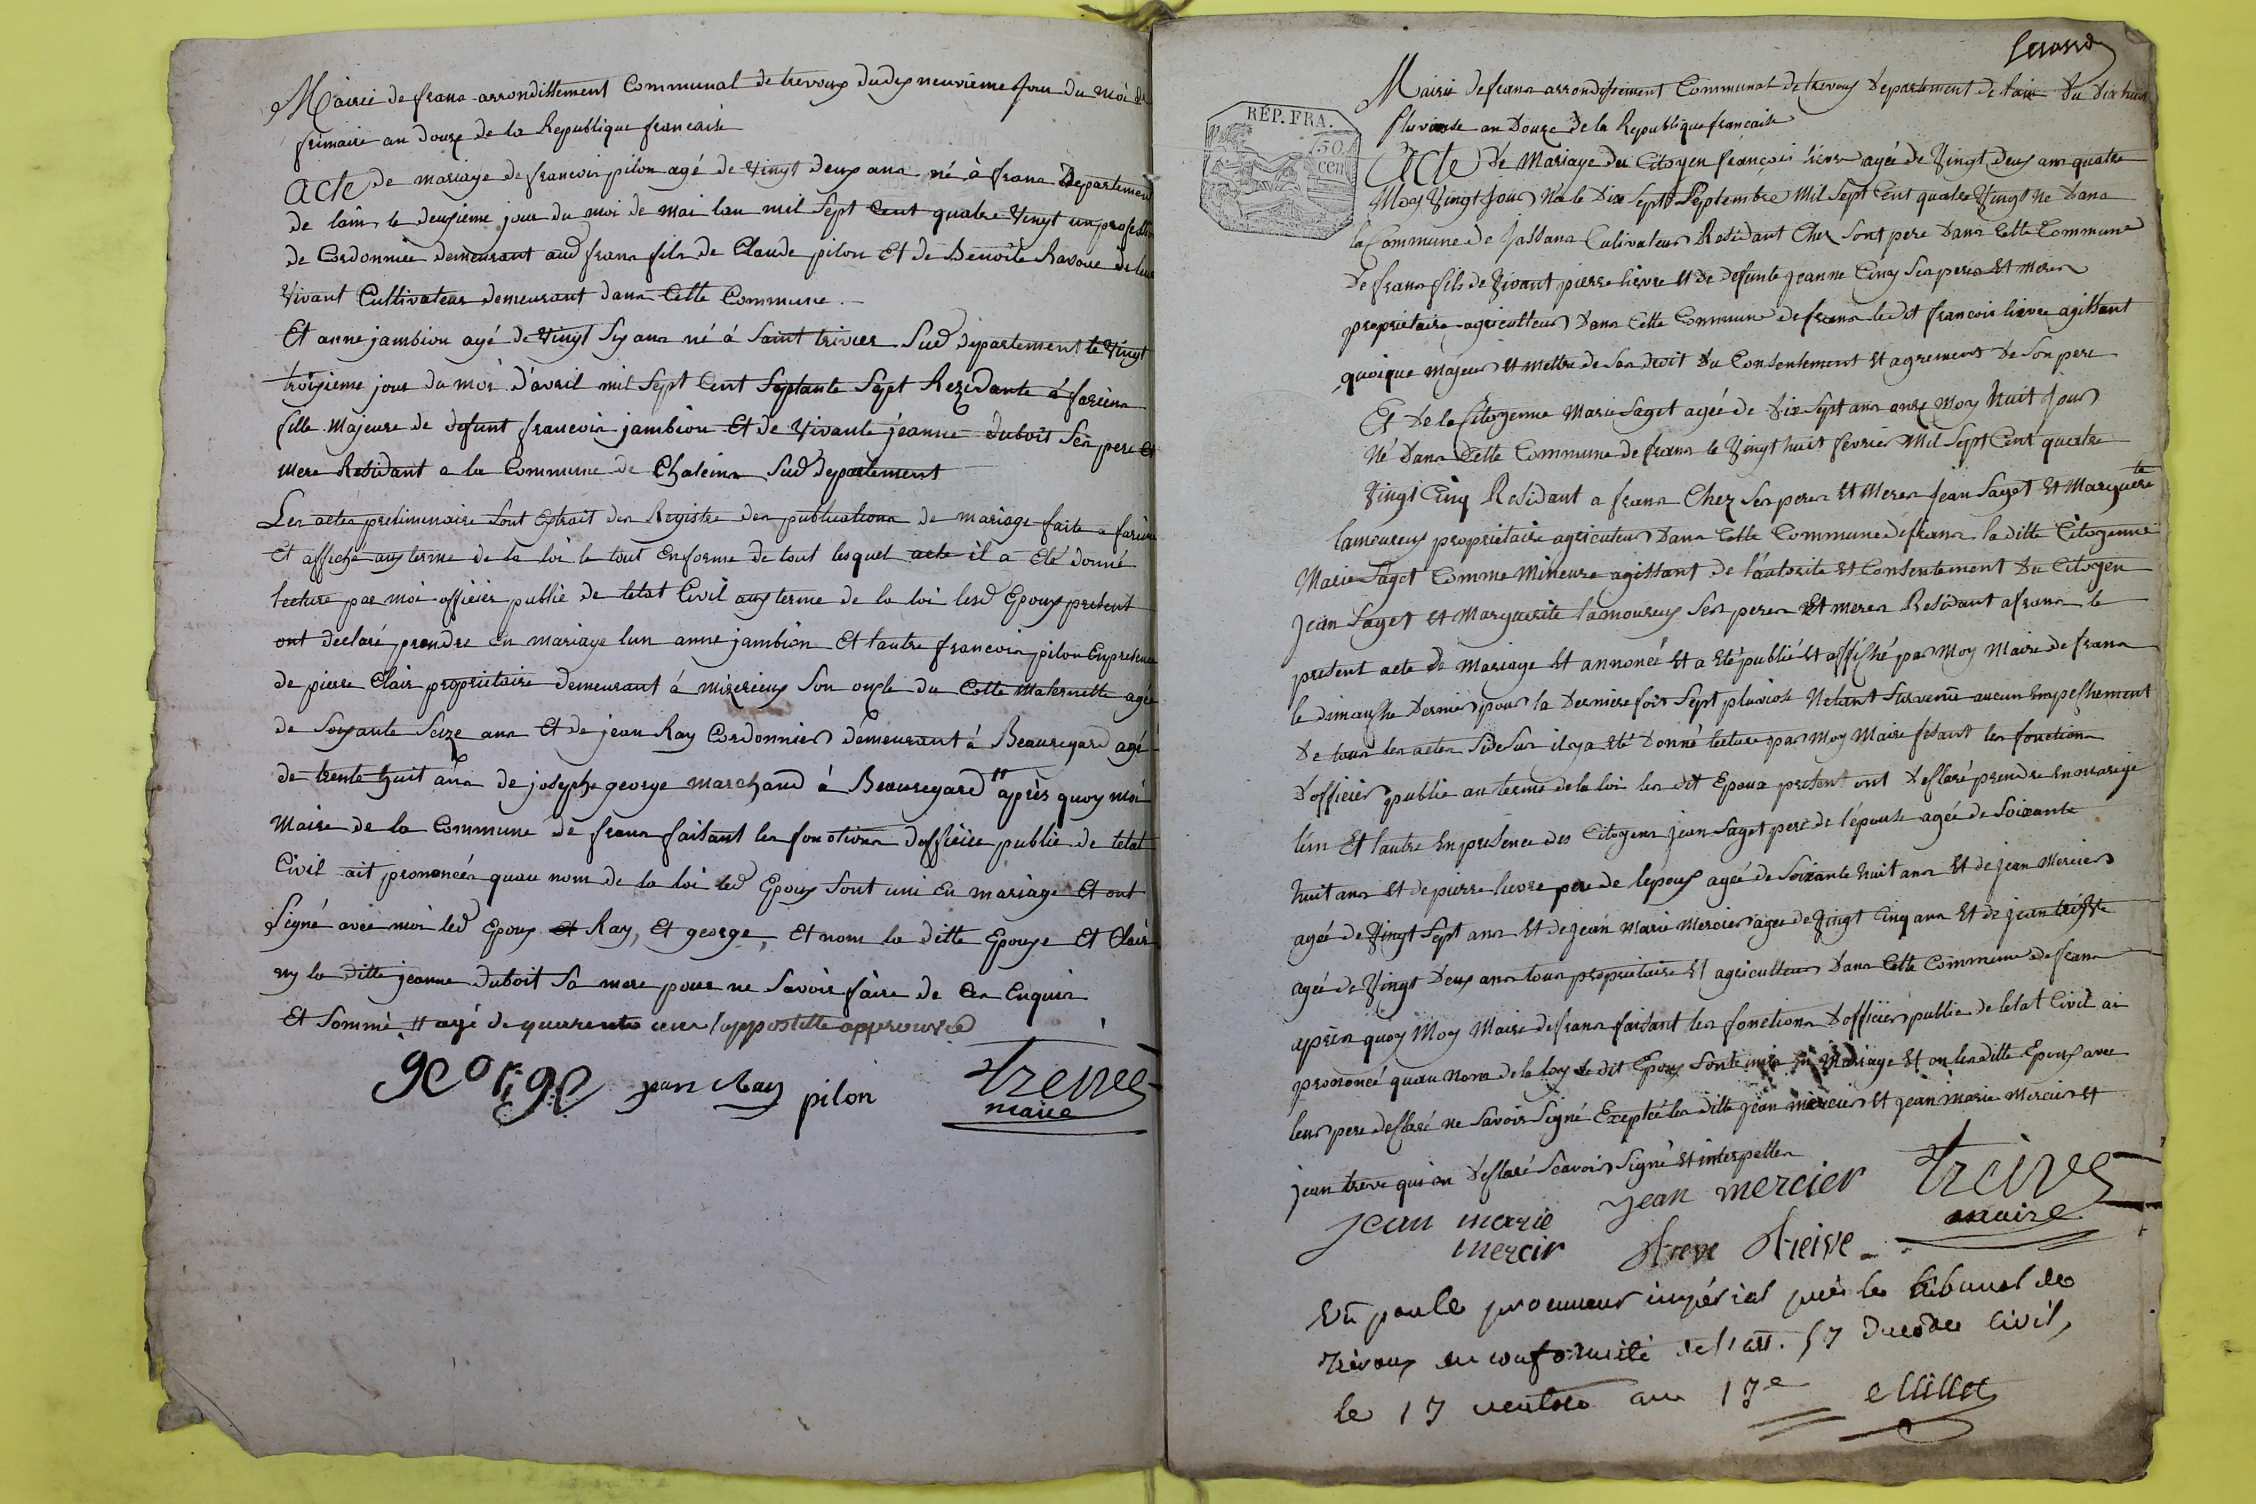 Mairie de frans arrondissement Communal de trevoux du dix neuvieme jour du moi de
frimaire an douze de la Republique francaise
Acte de mariage de francois pilon agé de vingt deux ans né à frans Departement
de lain le deusieme jour du moi de mai lan mil sept cent quatre vingt un profession
de Cordonnié demeurant aud frans fils de Claude pilon Et de Benoite Ravoue
vivant Cultivateur demeurant dans Cette Commune.
Et anne jambion agé de vingt six ans né á saint trivier sud departement le vingt
troisieme jour du moi d'avril mil sept Cent septante sept Rezidante á fareins
fille Majeure de defunt francois jambion Et de vivante jéanne duboit ses pere et
mere Residant a la Commune de Chaleins sud departement
Les actes preliminaire sont Extrait des Registre des publications de mariage faite a fareins
Et affiché aux terme de la loi le tout en forme de tout lesquel acte il a été donné
lecture par moi officier public de letat Civil aux terme de la loi lesd Epoux present
ont declaré prendre en mariage lun anne jambion Et lautre francois pilon En presence
de pierre Clair proprietaire demeurant á mizerieux son oncle du Cotté Maternelle agé
de soixante seize ans Et de jean Ray Cordonnier demeurant á Beauregard agé
de trente huit ans de joseph george marchand á Beauregard # après quoy moi
Maire de la Commune de frans faisant les fonctions dofficier public de letat
Civil ait prononcée quau nom de la loi led Epoux sont uni en mariage Et ont
signé avec moi led Epoux et Ray, Et george, Et nom la ditte Epouse Et Clair
ny la ditte jeanne duboit sa mere pour ne savoir faire de Ce Enquis
Et sommé # agé de quarente ans lappostille approuvée
george jean Ray pilon treive
maire
Mairie de frans arrondissement Communal de trevoux Departement de lain Du dix huit
pluviose an Douze de la Republique francaise
RÉP. FRA.
50
cent
Acte de Mariage du Citoyen françois lievre agée de vingt deux ans quatre
Moy vingt jour Né le Dix sept septembre Mil sept Cent quatre vingt Ne Dans
la Commune de Jassans Cultivateur Residant Chez sont pere Dans Cette Commune
De frans fils de vivant pierre lievre Et de defunte jeanne Cinq ses peres Et meres
proprietaire agriculteur Dans Cette Commune de frans ledit francois lievre agissant
quoique majeur Et Mettre de ses droit Du Consentement Et agrement De son pere
Et De la Citoyenne Marie Saget agée de Dix sept ans onze Moy huit jour
Né Dans Dette Commune de frans le vingt huit fevrier Mil sept Cent quatre
vingt Cinq Residant a frans Chez ses peres Et Meres jean Saget Et Marguerite
lamoureux proprietaire agriculteur Dans Cette Commune de frans la ditte Citoyenne
Marie Saget Comme Mineure agissant de l'autorité Et Consentement Du Citoyen
jean Saget Et Marguerite lamoureux ses peres Et meres Residant a frans le
present acte de Mariage Et annoncé Et a Eté publié Et affiché par Moy Maire de frans
le dimanche Dernier pour la Derniere fois sept pluviose Netant survenu aucun Empeshement
De tous les actes sidesur il y a Eté Donné lecture par Moy Maire fesant les fonctions
D'officier public au terme de la loi les dit Epoux present ont Deslaré prendre en mariage
lun Et lautre En presence des Citoyens jean Saget pere de l'épouse agée de soixante
huit ans Et de pierre lievre pere de lepoux agée de soixante huit ans Et de jean Mercier
agée de vingt sept ans Et de jean Marie Mercier agée de vingt Cinq ans Et de jean treive
agée de vingt Deux ans tous proprietaire Et agriculteur Dans Cette Commune de frans
apres quoy Moy Maire de frans faisant les fonctions Dofficier public de letat Civil ai
prononcé quau Nom de la loy le dit Epoux sont uni en Mariage Et on les ditte Epoux avec
leur pere deslaré ne savoir signé Exceptée les ditte jean mercier Et jean marie Mercier Et
jean treve qui on Deslaré scavoir signé Et interpeller
jean marie jean mercier treive
mercir treve treive maire
Vu par le procureur impérial près le tribunal de
trévoux en conformité de l'art. 57 du code civil,
le 17 ventose an 13e Millet